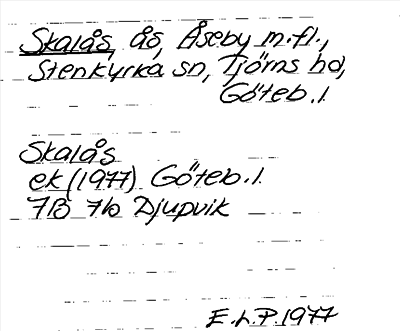 Skalås, ås, Åseby m.fl.,
Stenkyrka sn, Tjörns hd,
Göteb. l.
Skalås
ek (1977) Göteb. l.
7B 7b Djupvik
E.L.P. 1977